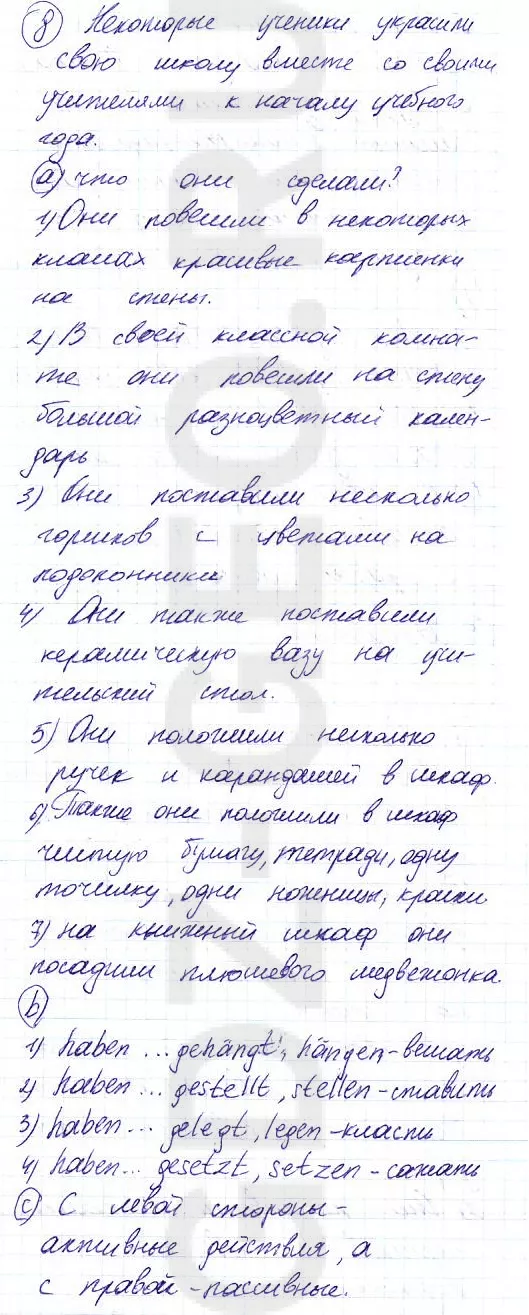 8 Некоторые ученики украсили
свою школу вместе со своими
учителями к началу учебного
года.
а) что они сделали?
1) Они повесили в некоторых
классах красивые картинки
на стены.
2) В своей классной комна-
те они повесили на стену
большой разноцветный кален-
дарь
3) Они поставили несколько
горшков с цветами на
подоконники
4) Они также поставили
керамическую вазу на учи-
тельский стол.
5) Они положили несколько
ручек и карандашей в шкаф.
6) Также они положили в шкаф
чистую бумагу, тетради, одну
точилку, одни ножницы, краски
7) на книжный шкаф они
посадили плюшевого медвежонка.
b)
1) haben ... gehängt, hängen - вешать
2) haben ... gestellt, stellen - ставить
3) haben ... gelegt, legen - класть
4) haben ... gesetzt, setzen - сажать
c) С левой стороны -
активные действия, а
с правой - пассивные.
GDZ-GEO.RU